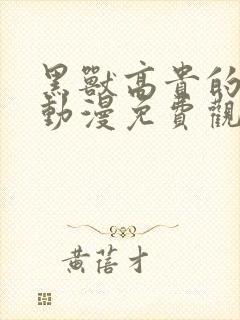 黑獸高貴的
動漫免費觀
黃蓓才